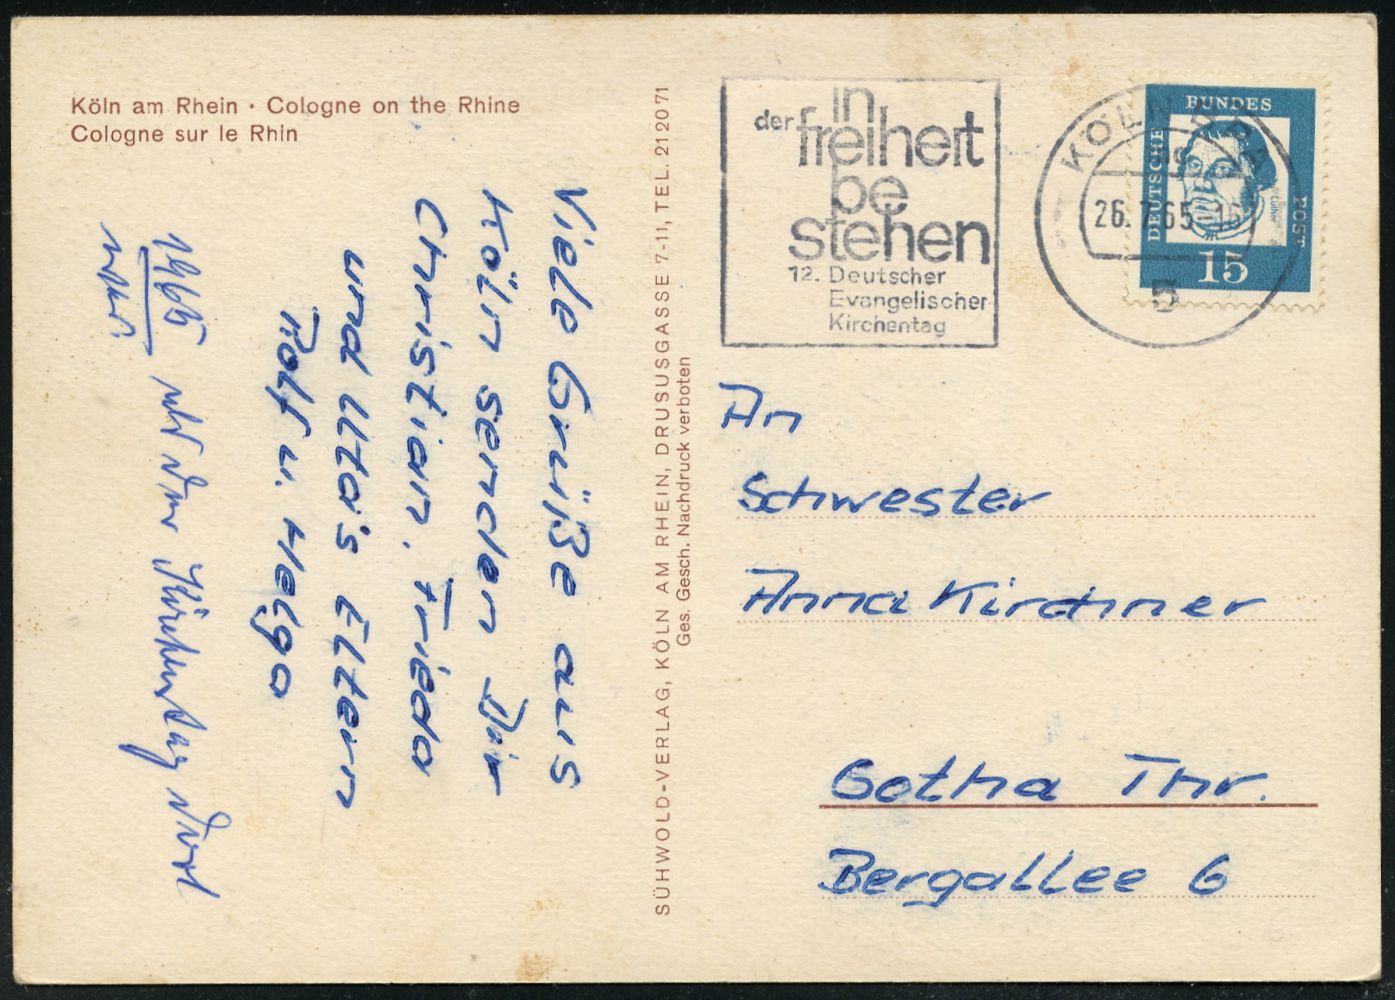 Köln am Rhein · Cologne on the Rhine
Cologne sur le Rhin
Viele Grüße aus
Köln senden Dir
Christian, Frieda
und Uta's Eltern
Rolf u. Helga
1965
der Kirchentag dort
SÜHWOLD-VERLAG, KÖLN AM RHEIN, DRUSUSGASSE 7-11, TEL. 21 20 71
Ges. Gesch. Nachdruck verboten
in
der freiheit
be
stehen
12. Deutscher
Evangelischer
Kirchentag
KÖLN
26.7.65
5
BUNDES
DEUTSCHE
POST
15
An
Schwester
Anna Kirchner
Gotha Thr.
Bergallee 6